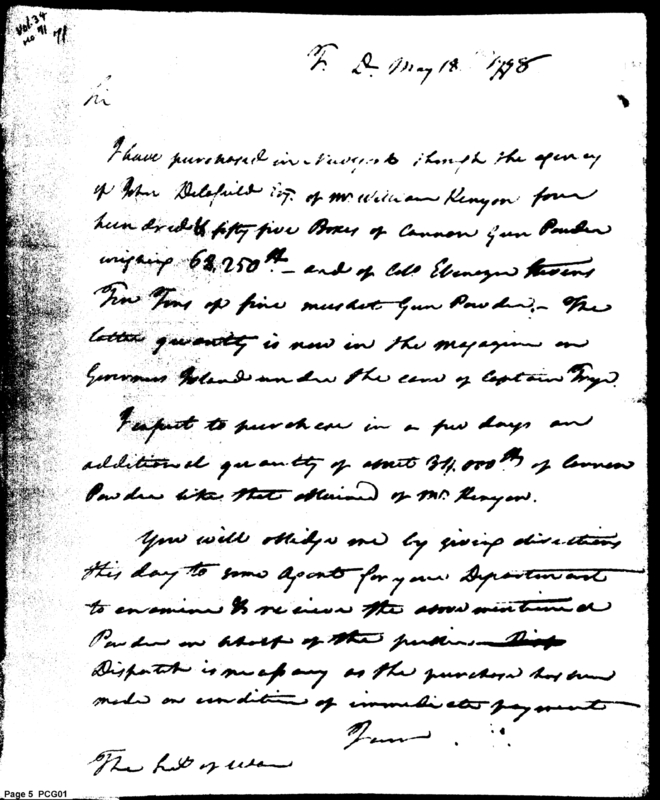 Vol. 34
no 71
71
T. D. May 18 1798
Sir
I have purchased in New york through the agency
of John Delafield Esq. of Mr. William Kenyon four
hundred & fifty five Boxes of Cannon Gun Powder
weighing 68,250 lb. – and of Col. Ebenezer Stevens
Ten Tons of fine musket Gun Powder. – The
latter quantity is now in the magazine on
Governors Island under the care of Captain Frye.
I expect to purchase in a few days an
additional quantity of about 34,000 lb of Cannon
Powder like that obtained of Mr. Kenyon.
You will oblidge me by giving directions
this day to some Agent for your Department
to examine & receive the above mentioned
Powder on behalf of the public
Dispatch is necessary as the purchase has been
made on condition of immediate payment
I am
The Sec. of War
Page 5 PCG01